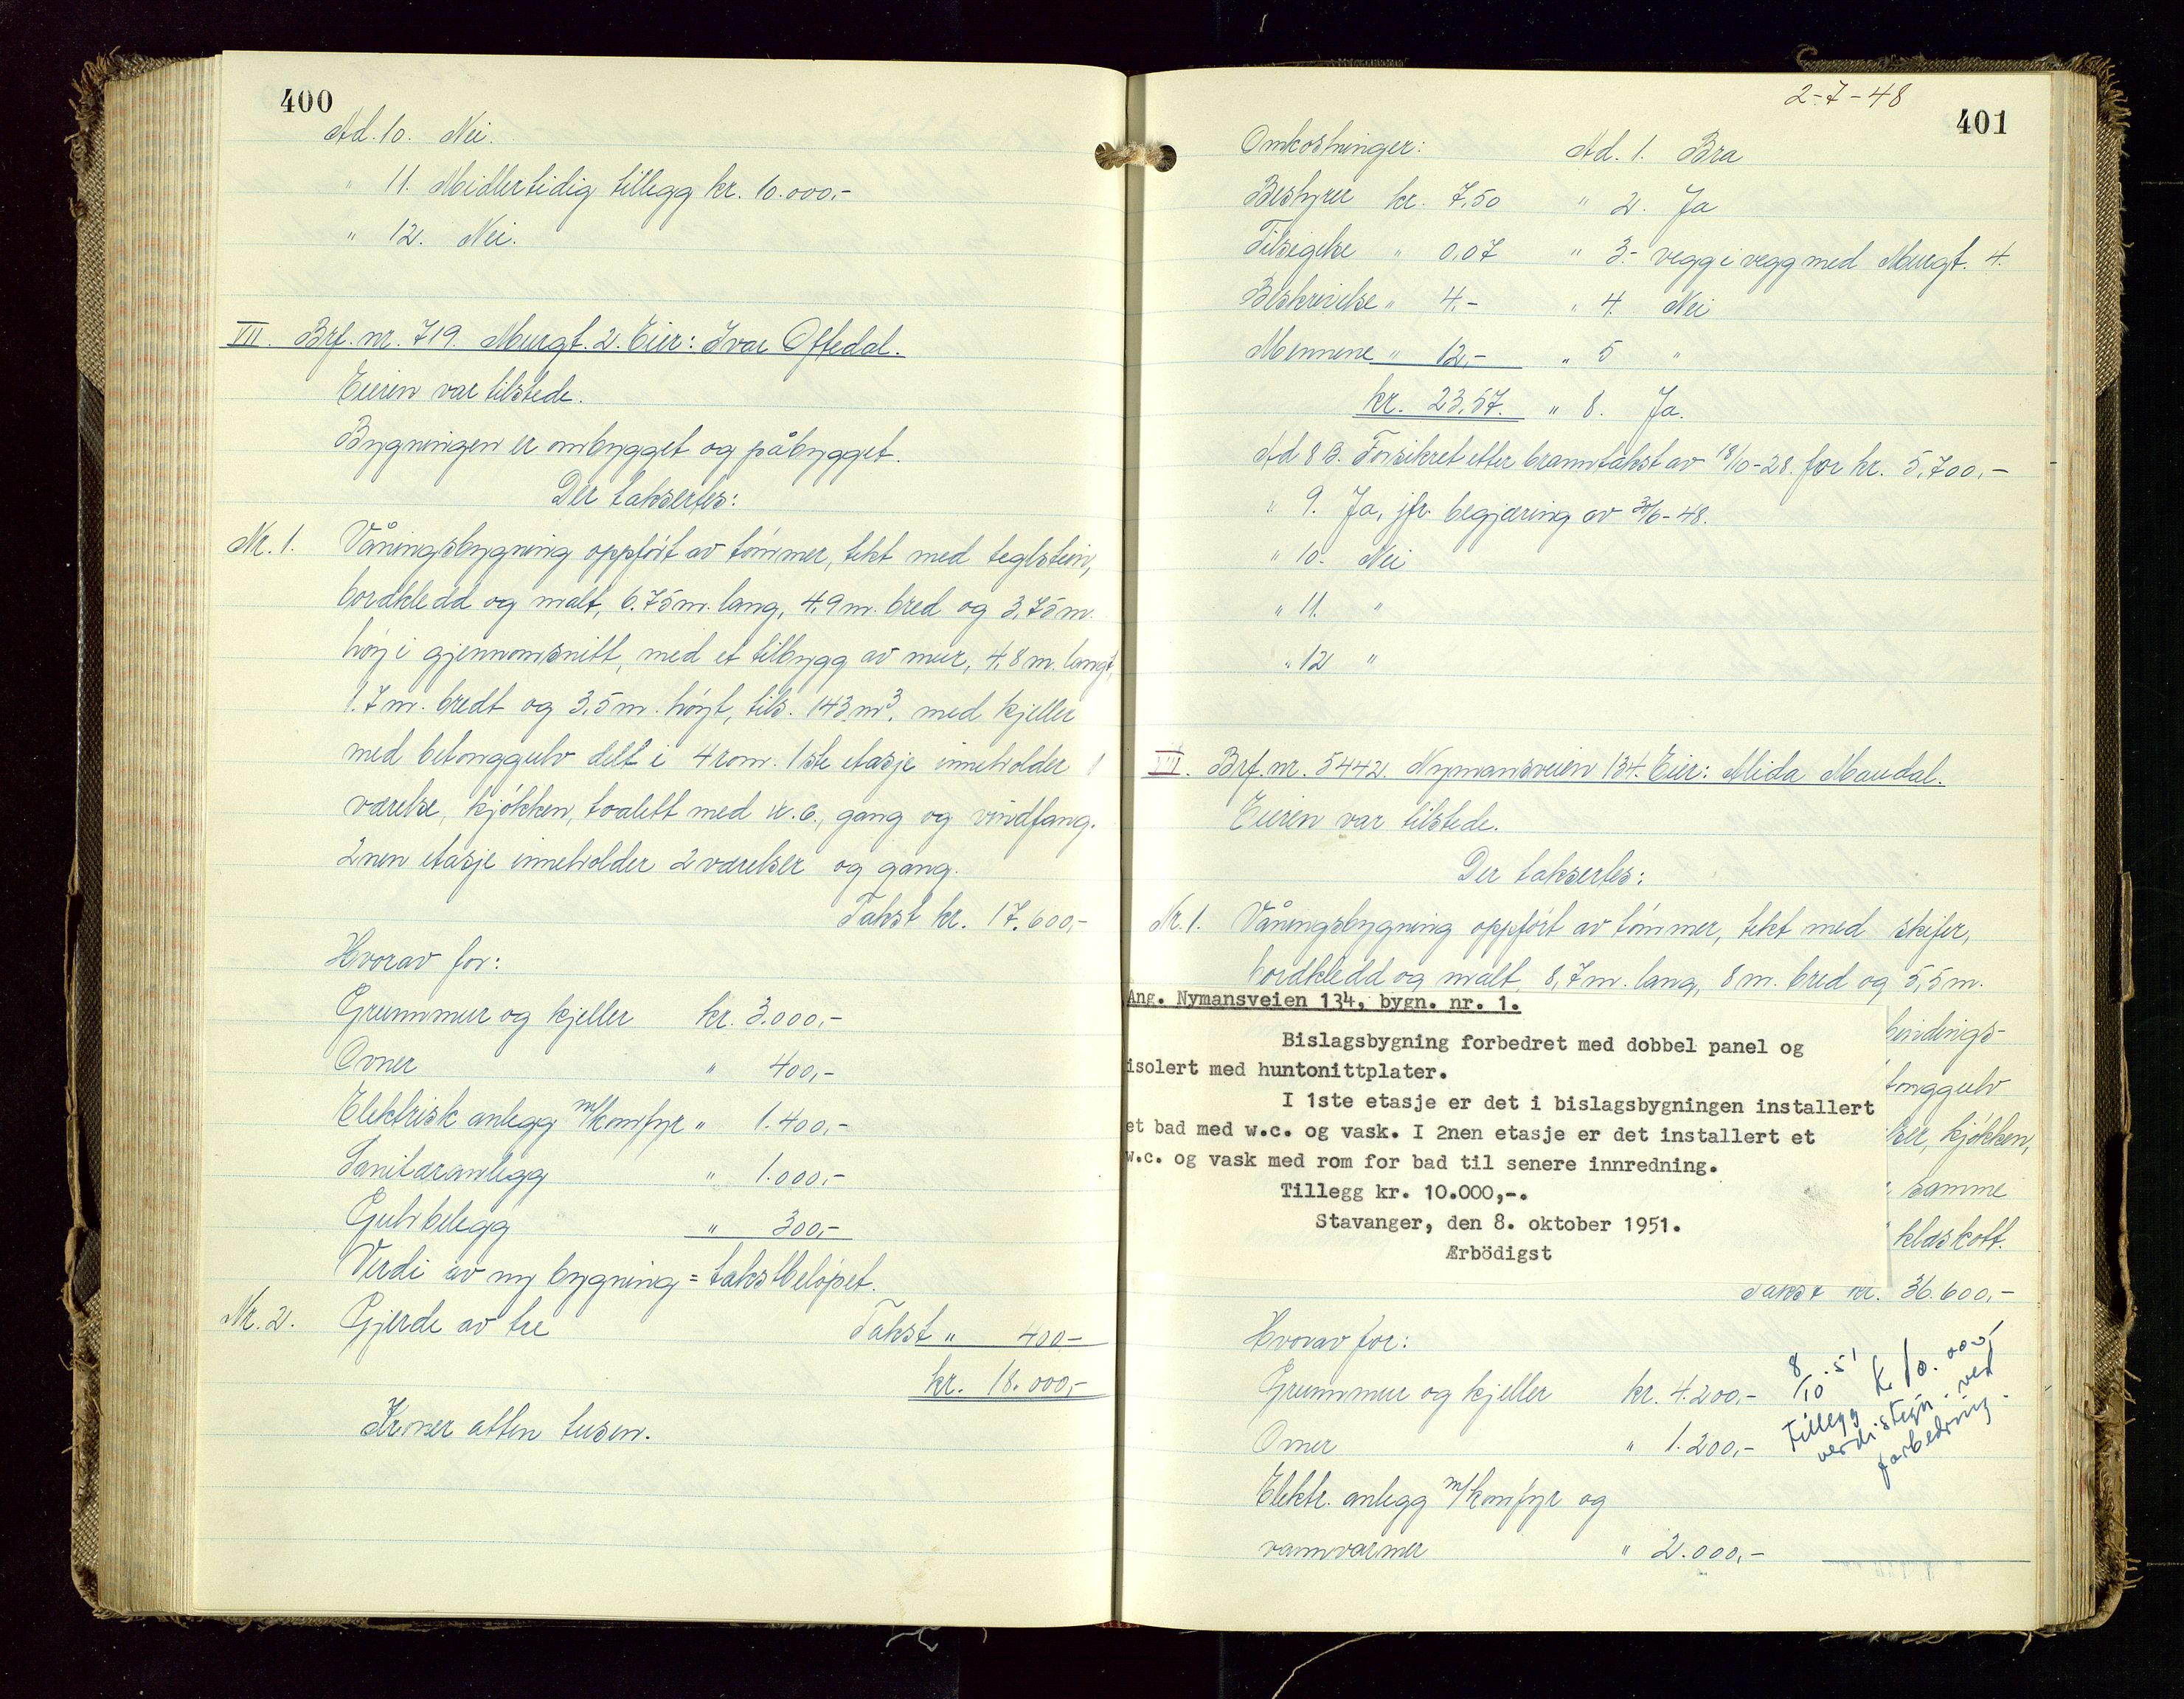 400
Ad. 10. Nei.
" 11. Midlertidig tillegg kr. 10.000,-
" 12. Nei.
VII. Brf. nr. 719. Murgt. 2. Eier: Ivar Oftedal.
Eieren var tilstede.
Bygningen er ombygget og påbygget.
Der taksertes:
Nr. 1. Våningsbygning oppført av tømmer, tekt med teglstein,
bordkledd og malt, 6.75 m. lang, 4.9 m. bred og 3,75 m.
høy i gjennomsnitt, med et tilbygg av mur, 4.8 m. langt,
1.7 m. bredt og 3.5 m. høyt, tils. 143 m³, med kjeller
med betonggulv delt i 4 rom. 1ste etasje inneholder 1
værelse, kjøkken, toalett med w.c., gang og vindfang.
2nen etasje inneholder 2 værelser og gang.
Takst kr. 17.600,-
Hvorav for:
Grunnmur og kjeller kr. 3.000,-
Ovner " 400,-
Elektrisk anlegg m/komfyr " 1.400,-
Sanitæranlegg " 1.000,-
Gulvbelegg " 300,-
Verdi av ny bygning = takstbeløpet.
Nr. 2. Gjerde av tre Takst " 400-
kr. 18.000,-
Kroner atten tusen.
2-7-48
401
Omkostninger: Ad. 1. Bra
Bestyrer kr. 7,50 " 2. Ja
Tilsigelse " 0,07 " 3.- vegg i vegg med Murgt. 4.
Beskrivelse " 4.- " 4. Nei
Mennene " 12,- " 5 "
kr. 23,57. " 8. Ja.
Ad 8 B. Forsikret etter branntakst av 18/10-28. for kr. 5,700,-
" 9. Ja, jfr. begjæring av 30/6-48.
" 10. Nei
" 11. "
" 12 "
VIII. Brf. nr. 5442. Nymansveien 134. Eier: Alida Maudal.
Eieren var tilstede.
Der taksertes:
Nr. 1. Våningsbygning oppført av tømmer, tekt med skifer,
bordkledd og malt, 8,7 m. lang, 8 m. bred og 5,5 m.
Ang. Nymansveien 134, bygn. nr. 1.
Bislagsbygning forbedret med dobbel panel og
isolert med huntonittplater.
I 1ste etasje er det i bislagsbygningen installert
et bad med w.c. og vask. I 2nen etasje er det installert et
w.c. og vask med rom for bad til senere innredning.
Tillegg kr. 10.000,-.
Stavanger, den 8. oktober 1951.
Ærbödigst
bindings-
tonggulv
lser, kjøkken,
samme
kldskott.
Takst kr. 36.600,-
Hvorav for:
Grunnmur og kjeller kr. 4.200,-
Ovner " 1.200,-
Elektr. anlegg m/komfyr og
vannvarmer " 2.000,-
8/10-51
Tillegg K. 10.000,-
verdistign. ved
forbedring.